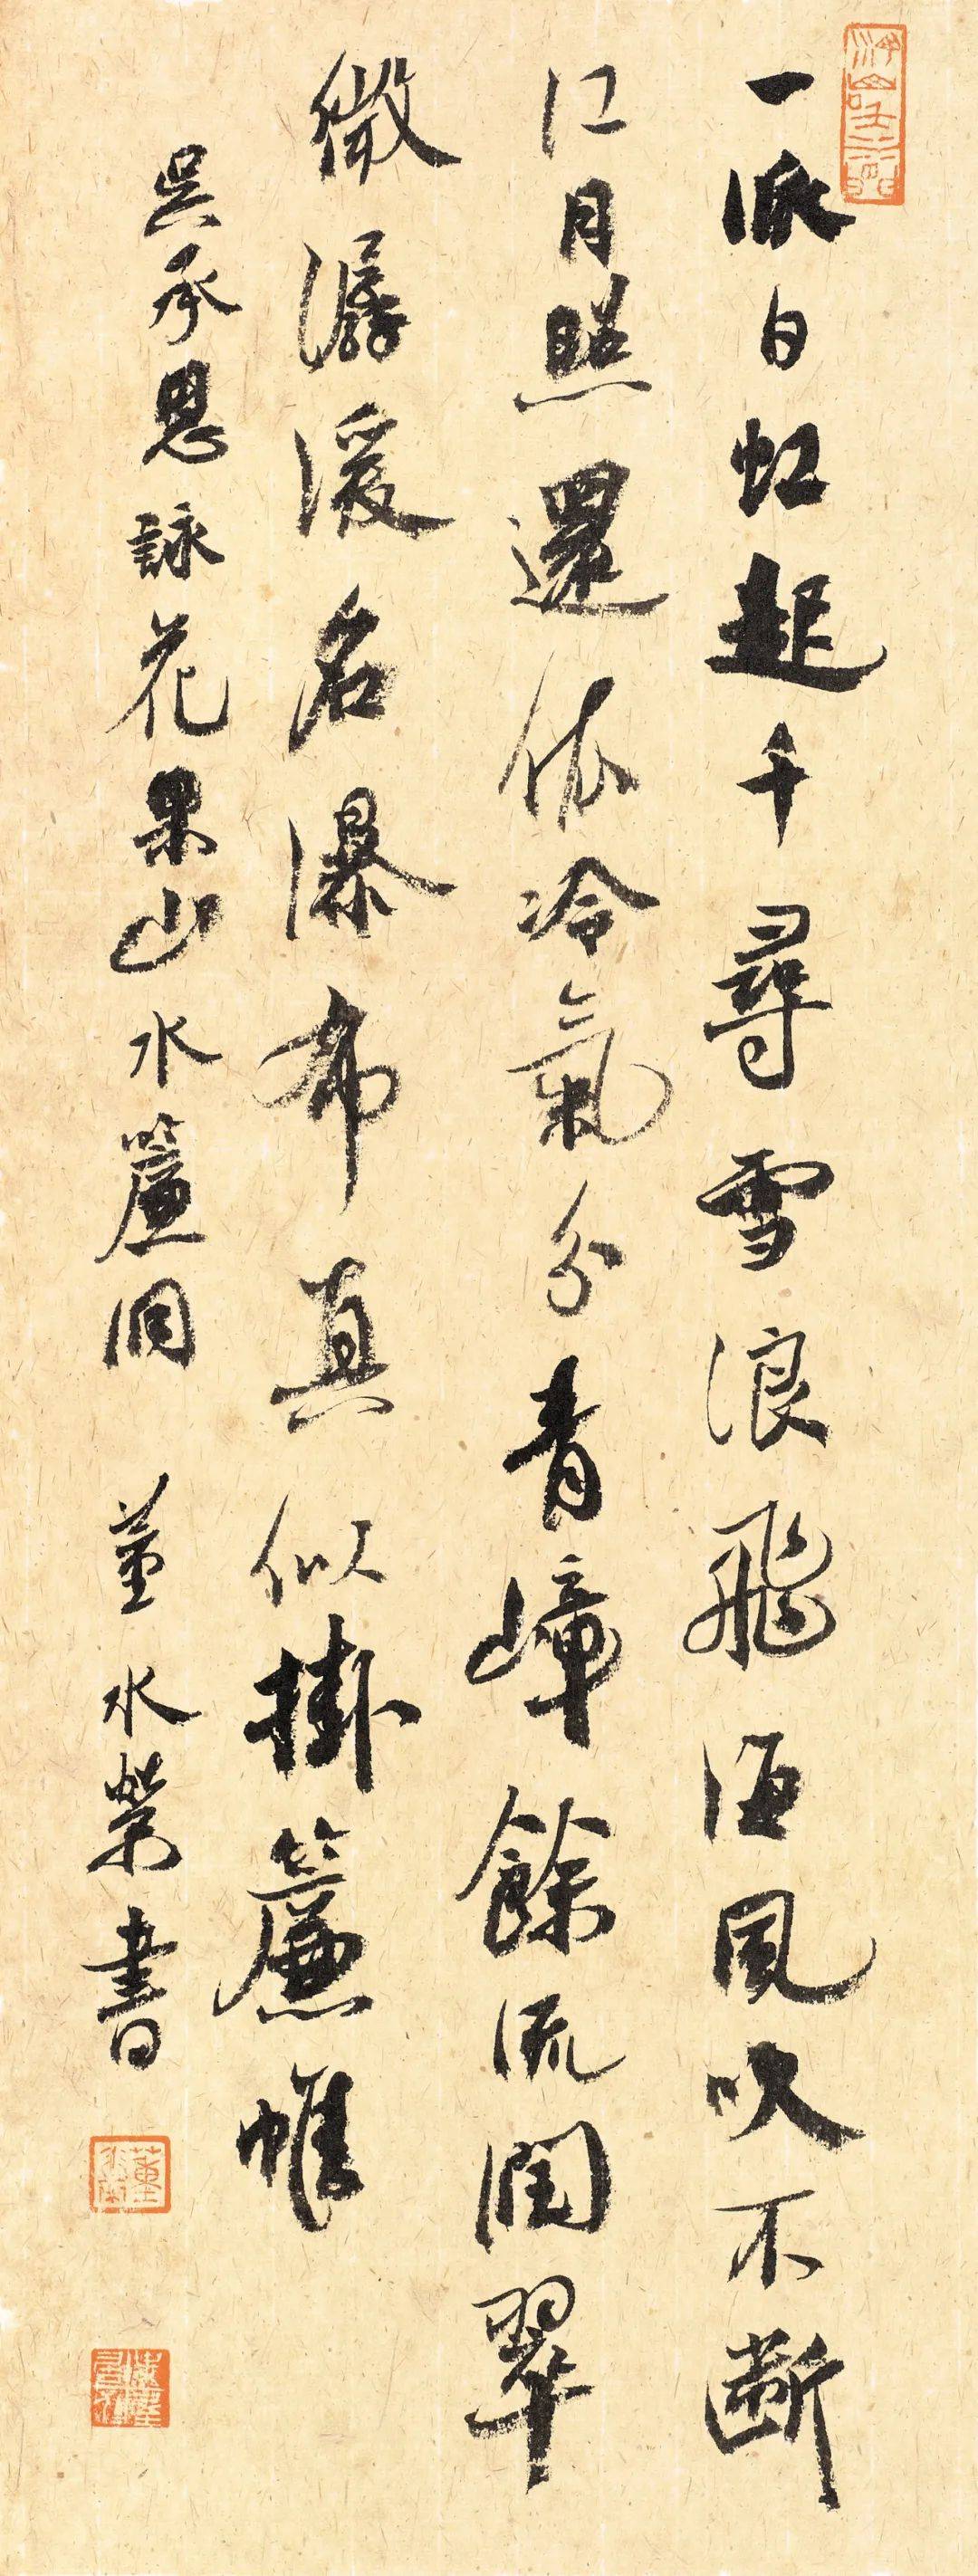 一派白虹起千尋雪浪飛海風吹不斷
江月照還依冷氣分青嶂餘流潤翠
微潺湲名瀑布真似掛簾帷
吳承恩詠花果山水簾洞 董水榮書
董水榮